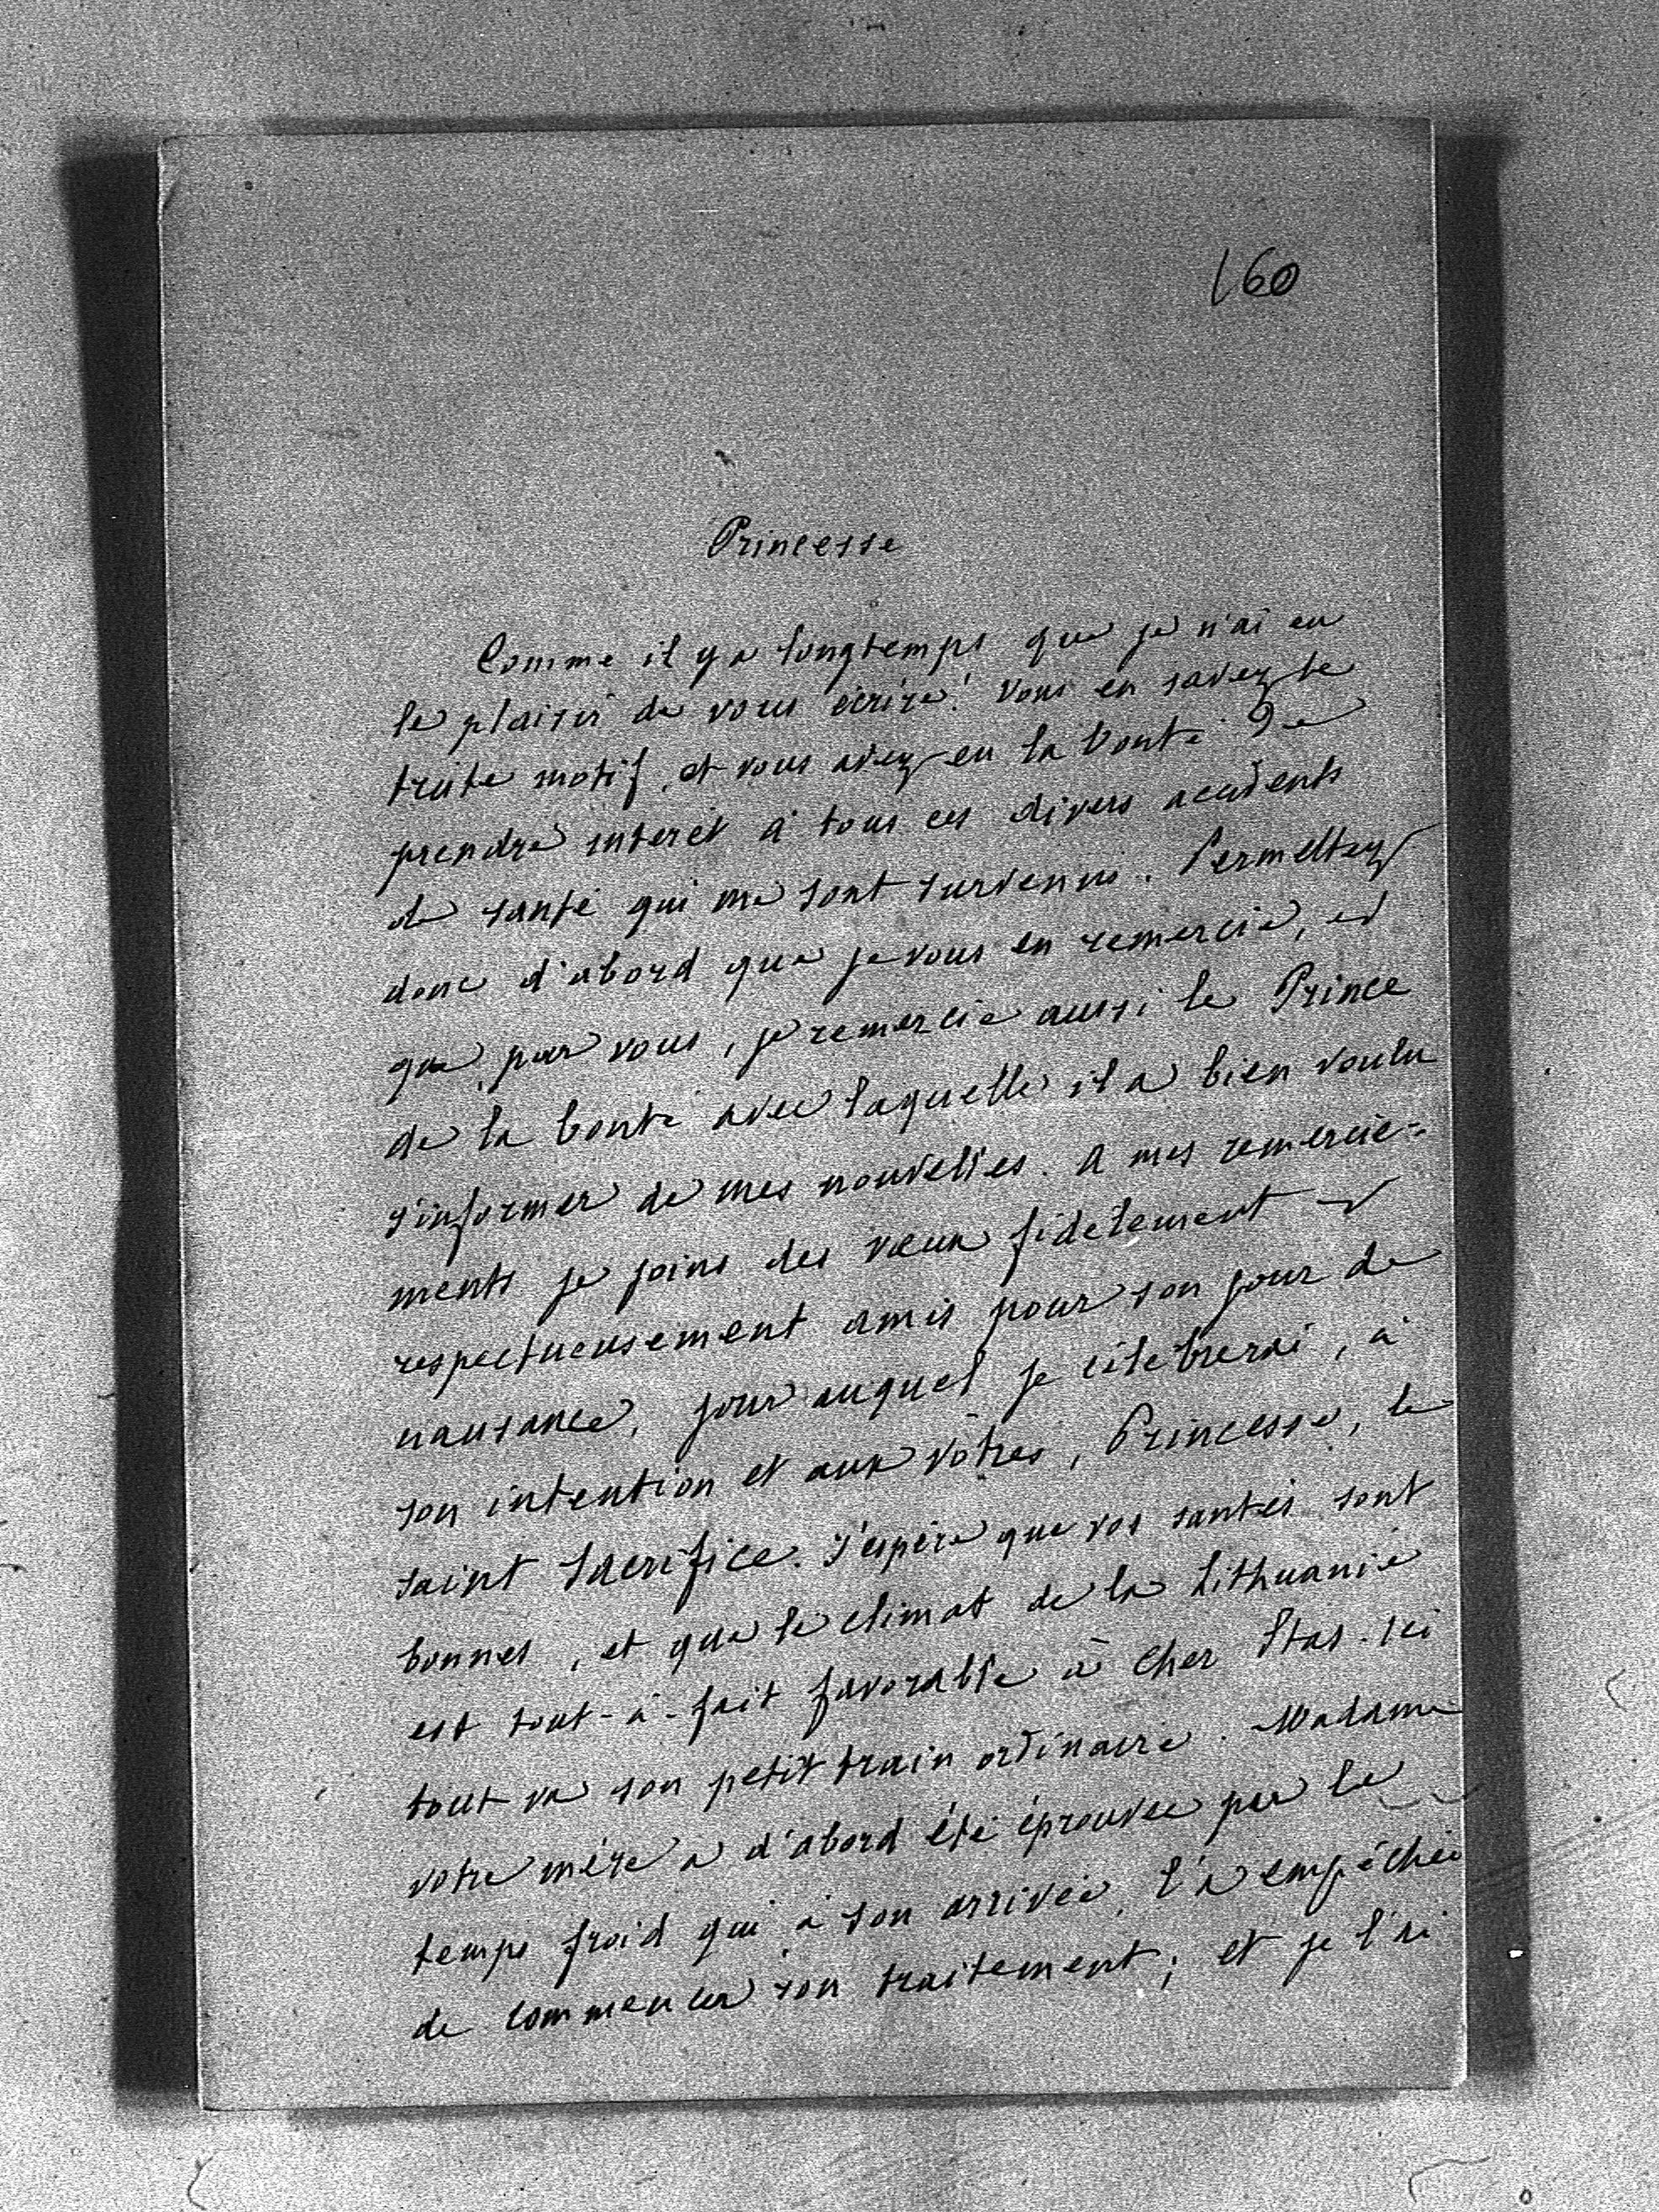 160
Princesse
Comme il y a longtemps que je n'ai eu
le plaisir de vous écrire! Vous en savez le
triste motif, et vous avez eu la bonté de
prendre interet à tous ces divers accidents
de santé qui me sont survenus. Permettez
donc d'abord que je vous en remercie, et
que, par vous, je remercie aussi le Prince
de la bonté avec laquelle il a bien voulu
s'informer de mes nouvelles. A mes remercie-
ments je joins des vœux fidèlement et
respectueusement amis pour son jour de
naissance, jour auquel je célébrerai, à
son intention et aux vôtres, Princesse, le
saint Sacrifice. J'espère que vos santés sont
bonnes, et que le climat de la Lithuanie
est tout-à-fait favorable à cher Stas. Ici
tout va son petit train ordinaire. Madame
votre mère a d'abord été éprouvée par le
temps froid qui à son arrivée, l'a empêchée
de commencer son traitement; et je l'ai